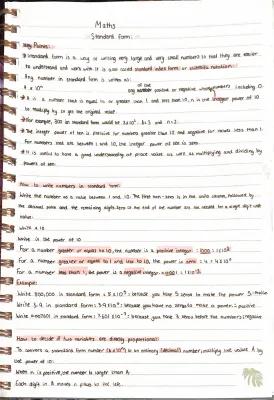 Maths
Standard Form:
Key Points:
Standard form is a way of writing very large and very small numbers so that they are easier
to understand and work with. It is also called standard index form or scientific notation.
Any number in standard form is written as:
A x 10ⁿ
A is a number that is equal to or greater than 1 and less than 10. n is the integer power of 10
to multiply by to get the original value.
For example, 300 in standard form would be 3x10². A=3 and n=2.
The integer power of ten is positive for numbers greater than 10 and negative for numbers less than 1.
For numbers that are between 1 and 10, the integer power of ten is zero.
It is useful to have a good understanding of place value as well as multiplying and dividing by
powers of ten.
How to write numbers in standard form:
Write the number as a value between 1 and 10. The first non-zero is in the units column, followed by
the decimal point and the remaining digits. Zeros at the end of the number are not needed for a single digit whole
value.
Write x 10
Write in the power of 10
For a number greater or equal to 10, the number is a positive integer: 1000 = 1x10³
For a number greater or equal to 1 and less to 10, the power is zero: 4 = 4 x 10⁰
For a number less than 1, the power is a negative integer: 0.001 = 1x10⁻³
Example:
Write 800,000 in standard form
Write 3.9 in standard form: 3.9x10⁰: because you have no zeros to make a power
Write 0.007601 in standard form: 7.601x10⁻³: because you have 3 zeros before the numbers: negative
How to decide if two variables are directly proportional:
To convert a standard form number (A x 10ⁿ) to an ordinary (decimal) number, multiply the value A by
the power of 10:
When n is positive, the number is larger than A.
Each digit in A moves n places to the left.